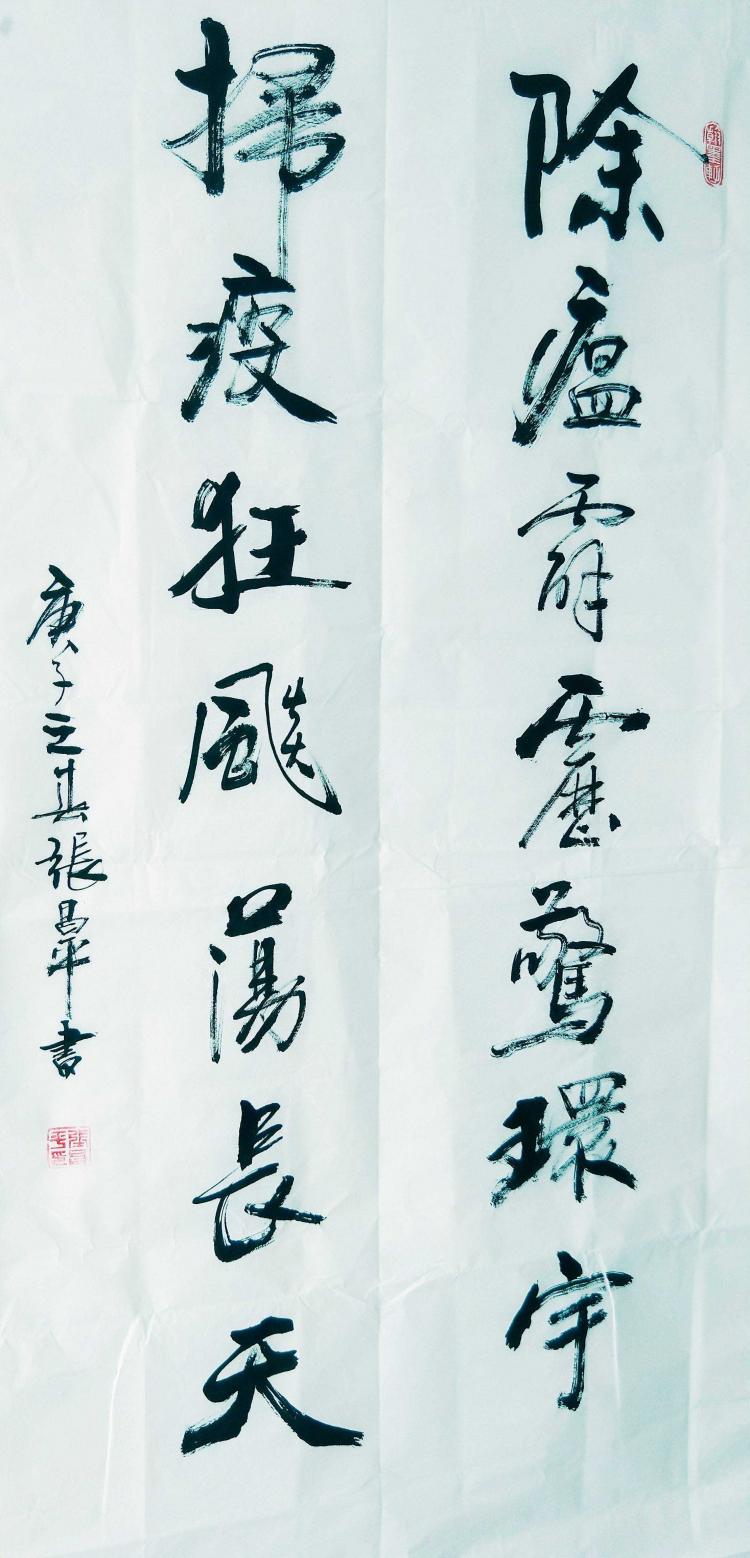 除瘟霹靂驚環宇
掃疫狂飈蕩長天
庚子之春張昌平書